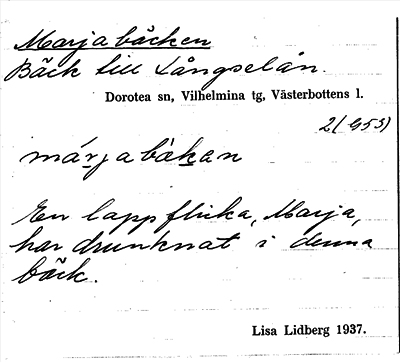 Marjabäcken
Bäck till Långselån.
Dorotea sn, Vilhelmina tg, Västerbottens l.
2(G53)
márjabäkan
En lappflicka, Marja,
har drunknat i denna
bäck.
Lisa Lidberg 1937.